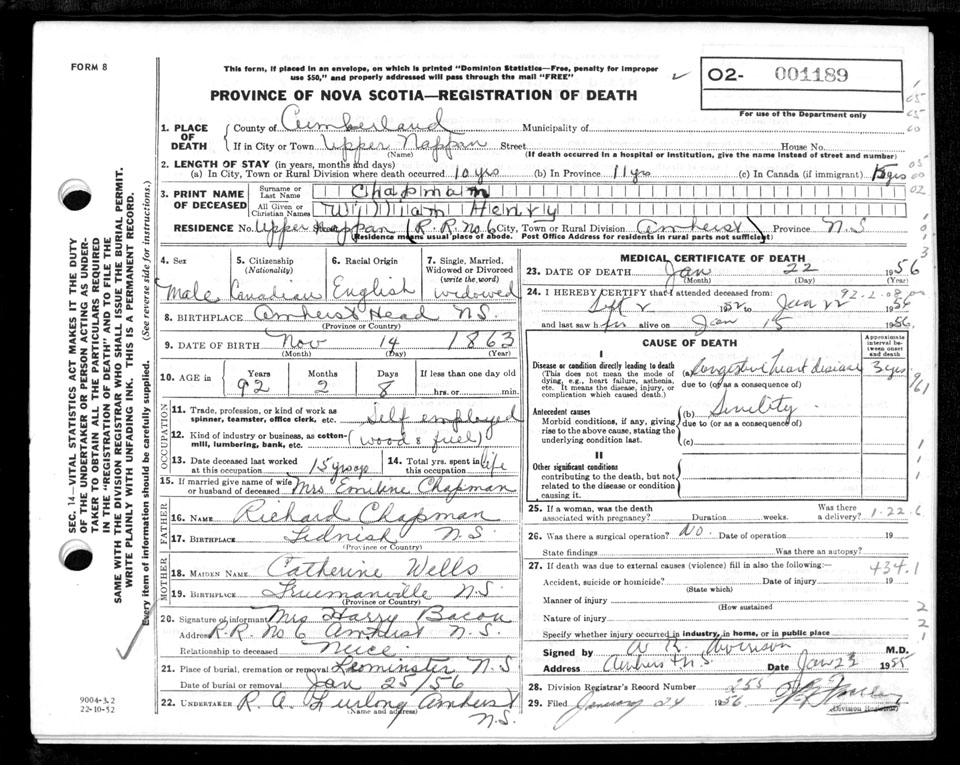 FORM 8
This form, if placed in an envelope, on which is printed "Dominion Statistics—Free, penalty for improper
use $50," and properly addressed will pass through the mail "FREE"
PROVINCE OF NOVA SCOTIA—REGISTRATION OF DEATH
O2- 001189
For use of the Department only
1. PLACE OF DEATH County of Cumberland Municipality of
If in City or Town Upper Nappan Street House No.
(Name) (If death occurred in a hospital or institution, give the name instead of street and number)
2. LENGTH OF STAY (in years, months and days)
(a) In City, Town or Rural Division where death occurred 10 yrs (b) In Province 11 yrs (c) In Canada (if immigrant)
3. PRINT NAME OF DECEASED Surname or Last Name Chapman
All Given or Christian Names William Henry
RESIDENCE No. Upper Nappan (R.R. No. 6 City, Town or Rural Division Amherst) Province N.S
(Residence means usual place of abode. Post Office Address for residents in rural parts not sufficient)
4. Sex Male
5. Citizenship (Nationality) Canadian
6. Racial Origin English
7. Single, Married, Widowed or Divorced (write the word) widowed
8. BIRTHPLACE Amherst Head N.S.
(Province or Country)
9. DATE OF BIRTH Nov 14 1863
(Month) (Day) (Year)
10. AGE in Years 92 Months 2 Days 8 If less than one day old hrs. or min.
OCCUPATION
11. Trade, profession, or kind of work as spinner, teamster, office clerk, etc. Self employed
12. Kind of industry or business, as cotton-mill, lumbering, bank, etc. (wood & fuel)
13. Date deceased last worked at this occupation 15 yrs ago
14. Total yrs. spent in this occupation life
15. If married give name of wife or husband of deceased Mrs Emiline Chapman
FATHER
16. NAME Richard Chapman
17. BIRTHPLACE Tidnish N.S.
(Province or Country)
MOTHER
18. MAIDEN NAME Catherine Wells
19. BIRTHPLACE Truemanville N.S.
(Province or Country)
20. Signature of informant Mrs Harry Bacon
Address R.R. No 6 Amherst N.S.
Relationship to deceased Niece
21. Place of burial, cremation or removal Leominster N.S
Date of burial or removal Jan 25/56
22. UNDERTAKER R. A. Furlong Amherst
(Name and address) N.S.
MEDICAL CERTIFICATE OF DEATH
23. DATE OF DEATH Jan 22 1956
(Month) (Day) (Year)
24. I HEREBY CERTIFY that I attended deceased from: 92-2-08
Sept 2 1952 to Jan 19
and last saw h alive on Jan 15 1956.
CAUSE OF DEATH
Approximate interval between onset and death
I
Disease or condition directly leading to death
(This does not mean the mode of dying, e.g., heart failure, asthenia, etc. It means the disease, injury, or complication which caused death.)
(a) Congestive heart disease 3 yrs
due to (or as a consequence of)
Antecedent causes
Morbid conditions, if any, giving rise to the above cause, stating the underlying condition last.
(b) Senility
due to (or as a consequence of)
(c)
II
Other significant conditions
contributing to the death, but not related to the disease or condition causing it.
25. If a woman, was the death associated with pregnancy? Duration weeks. Was there a delivery? 1-22.6
26. Was there a surgical operation? No. Date of operation 19
State findings Was there an autopsy?
27. If death was due to external causes (violence) fill in also the following:— 434.1
Accident, suicide or homicide? Date of injury 19
(State which)
Manner of injury
(How sustained
Nature of injury
Specify whether injury occurred in industry, in home, or in public place
Signed by M.D.
Address Amherst N.S. Date Jan 23 1955
28. Division Registrar's Record Number 255
29. Filed January 24 1956
Division Registrar
SEC. 14—VITAL STATISTICS ACT MAKES IT THE DUTY
OF THE UNDERTAKER OR PERSON ACTING AS UNDER-
TAKER TO OBTAIN ALL THE PARTICULARS REQUIRED
IN THE "REGISTRATION OF DEATH" AND TO FILE THE
SAME WITH THE DIVISION REGISTRAR WHO SHALL ISSUE THE BURIAL PERMIT.
WRITE PLAINLY WITH UNFADING INK. THIS IS A PERMANENT RECORD.
Every item of information should be carefully supplied. (See reverse side for instructions.)
9004-3.2
22-10-52